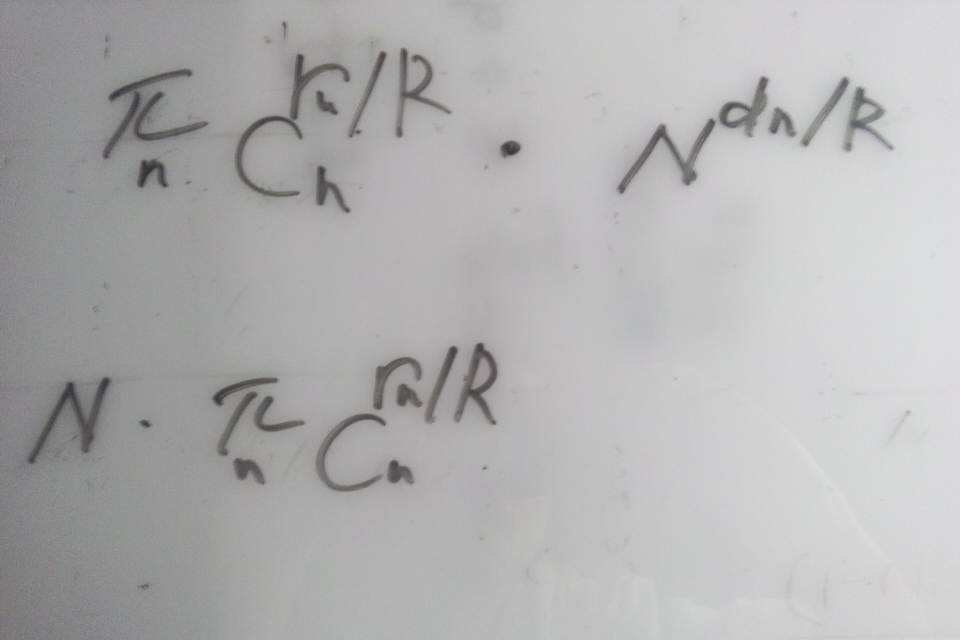 π_n C_n^{r_n/R} · N^{d_n/R}
N · π_n C_n^{r_n/R}